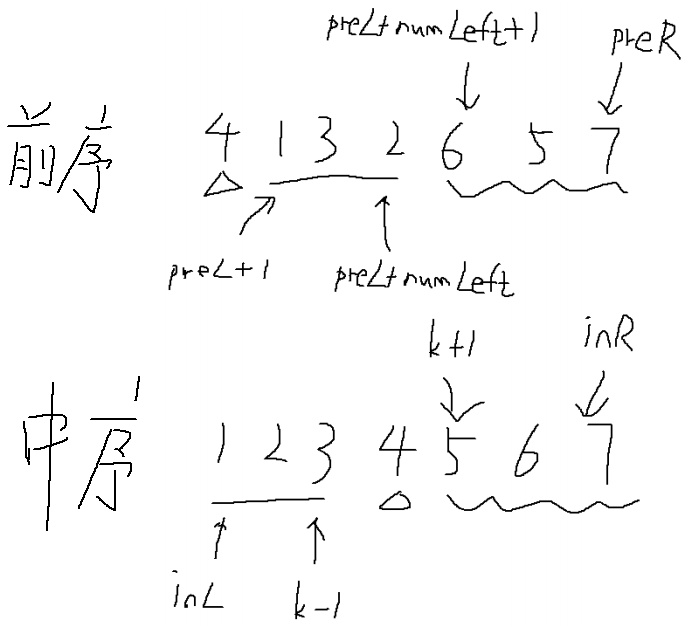 preL+numLeft+1 preR
前序 4 1 3 2 6 5 7
preL+1 preL+numLeft
k+1 inR
中序 1 2 3 4 5 6 7
inL k-1